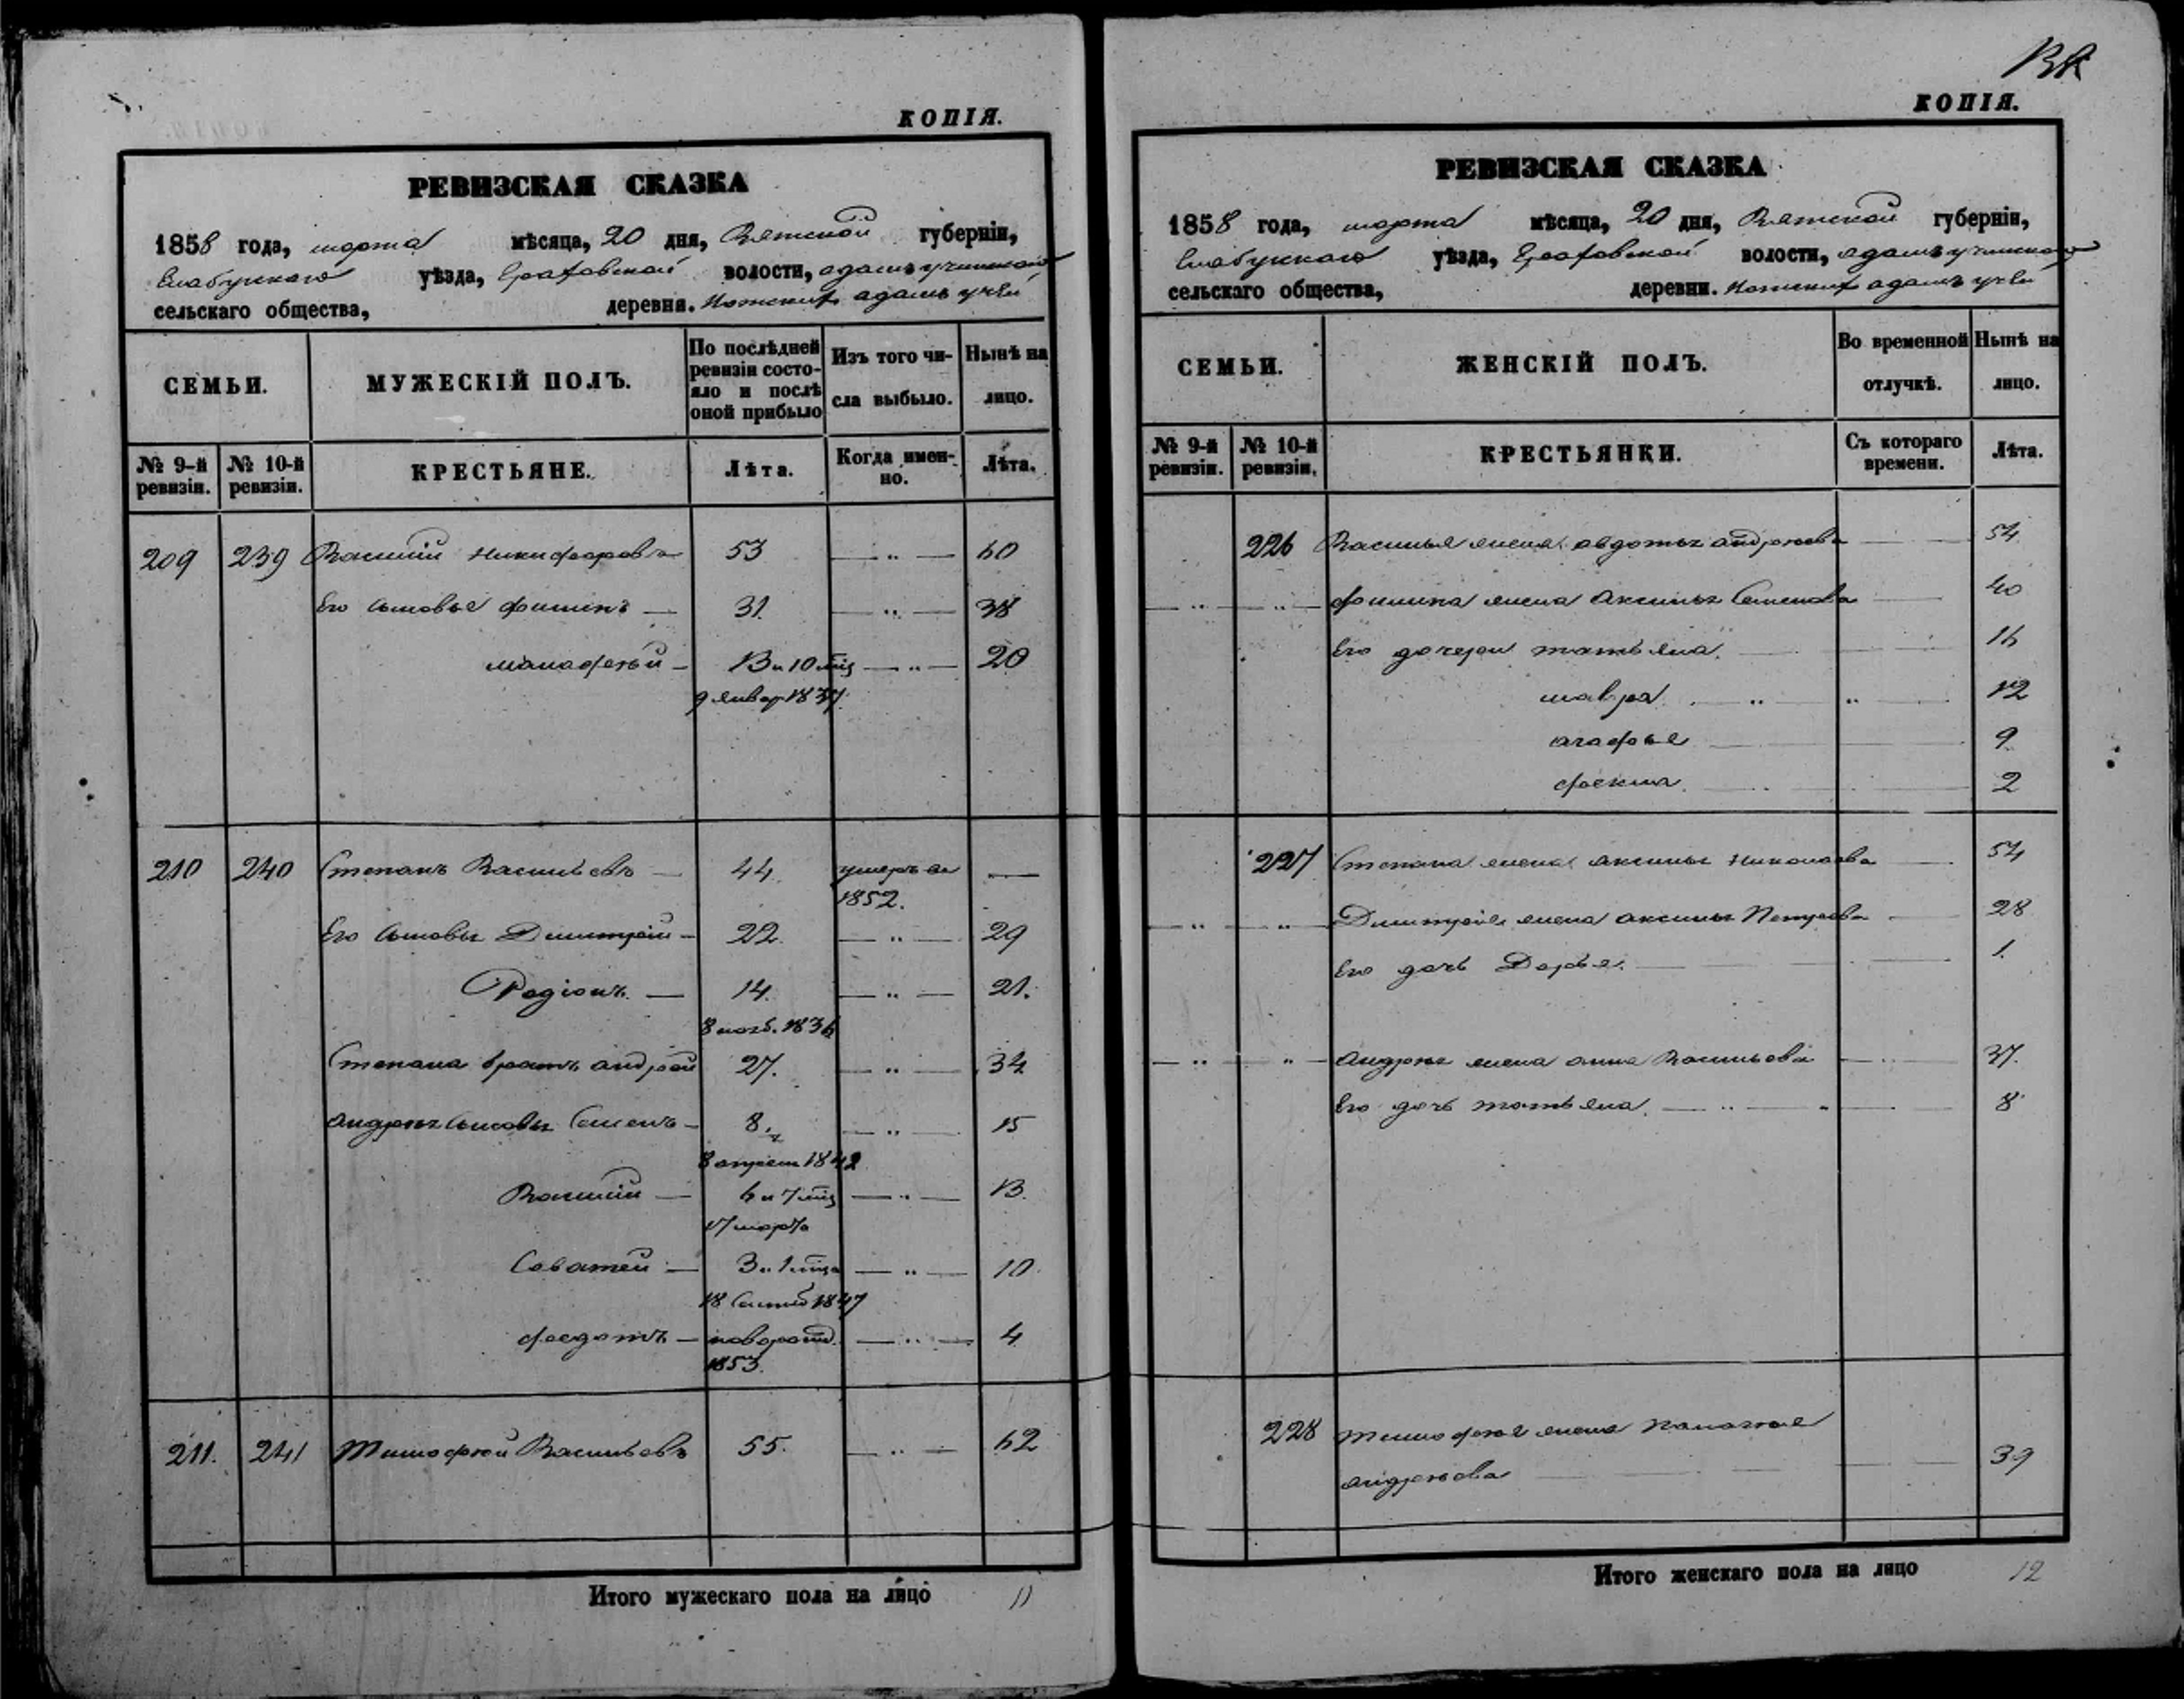 КОПІЯ.
РЕВИЗСКАЯ СКАЗКА
1858 года, марта мѣсяца, 20 дня, Вятской губерніи,
Елабужскаго уѣзда, Граховской волости, адамъ учинскаго
сельскаго общества, деревни. адамъ учей
СЕМЬИ. МУЖЕСКІЙ ПОЛЪ. По послѣдней ревизіи состояло и послѣ оной прибыло Изъ того числа выбыло. Нынѣ на лицо.
№ 9-й ревизіи. № 10-й ревизіи. КРЕСТЬЯНЕ. Лѣта. Когда именно. Лѣта.
209 239 Василій Никифоровъ 53 — „ — 60
Его сыновья филипъ — 31. — „ — 38
малафей — 13 и 10 мѣц — „ — 20
9 январ. 1837
210 240 Степанъ Васильевъ — 44. умеръ въ —
1852.
Его сыновья Димитрій — 22. — „ — 29
Родіонъ. — 14. — „ — 21.
8 нояб. 1836
Степана братъ андрей 27. — „ — 34
андрея сыновья Семенъ — 8. — „ — 15
8 апреля 1842
Василій — 6 и 7 мѣц — „ — 13.
17 марта
Саватей — 3 и 1 мѣца — „ — 10.
18 Сентяб 1847
федотъ — новорожд. — „ — 4
1853.
211. 241 Тимофей Васильевъ 55. — „ — 62
Итого мужескаго пола на лицо 11
КОПІЯ.
РЕВИЗСКАЯ СКАЗКА
1858 года, марта мѣсяца, 20 дня, Вятской губерніи,
Елабужскаго уѣзда, Граховской волости, адамъ учинскаго
сельскаго общества, деревни. адамъ учей
СЕМЬИ. ЖЕНСКІЙ ПОЛЪ. Во временной отлучкѣ. Нынѣ на лицо.
№ 9-й ревизіи. № 10-й ревизіи. КРЕСТЬЯНКИ. Съ котораго времени. Лѣта.
226 Василья жена авдотья андреева — 54
— „ — „ — филипа жена Аксинья Семенова — 40
Его дочери татьяна. — 16
мавра. — „ „ — 12
агафья — 9
фекла. — 2
227 Степана жена аксинья Николаева — 54
— „ — „ — Димитрія жена аксинья Петрова — 28
Его дочь Дарья. — 1.
— „ — „ — андрея жена анна Васильева — 37.
Его дочь татьяна. — „ — 8
228 тимофея жена Палагея
андреева — 39
Итого женскаго пола на лицо 12